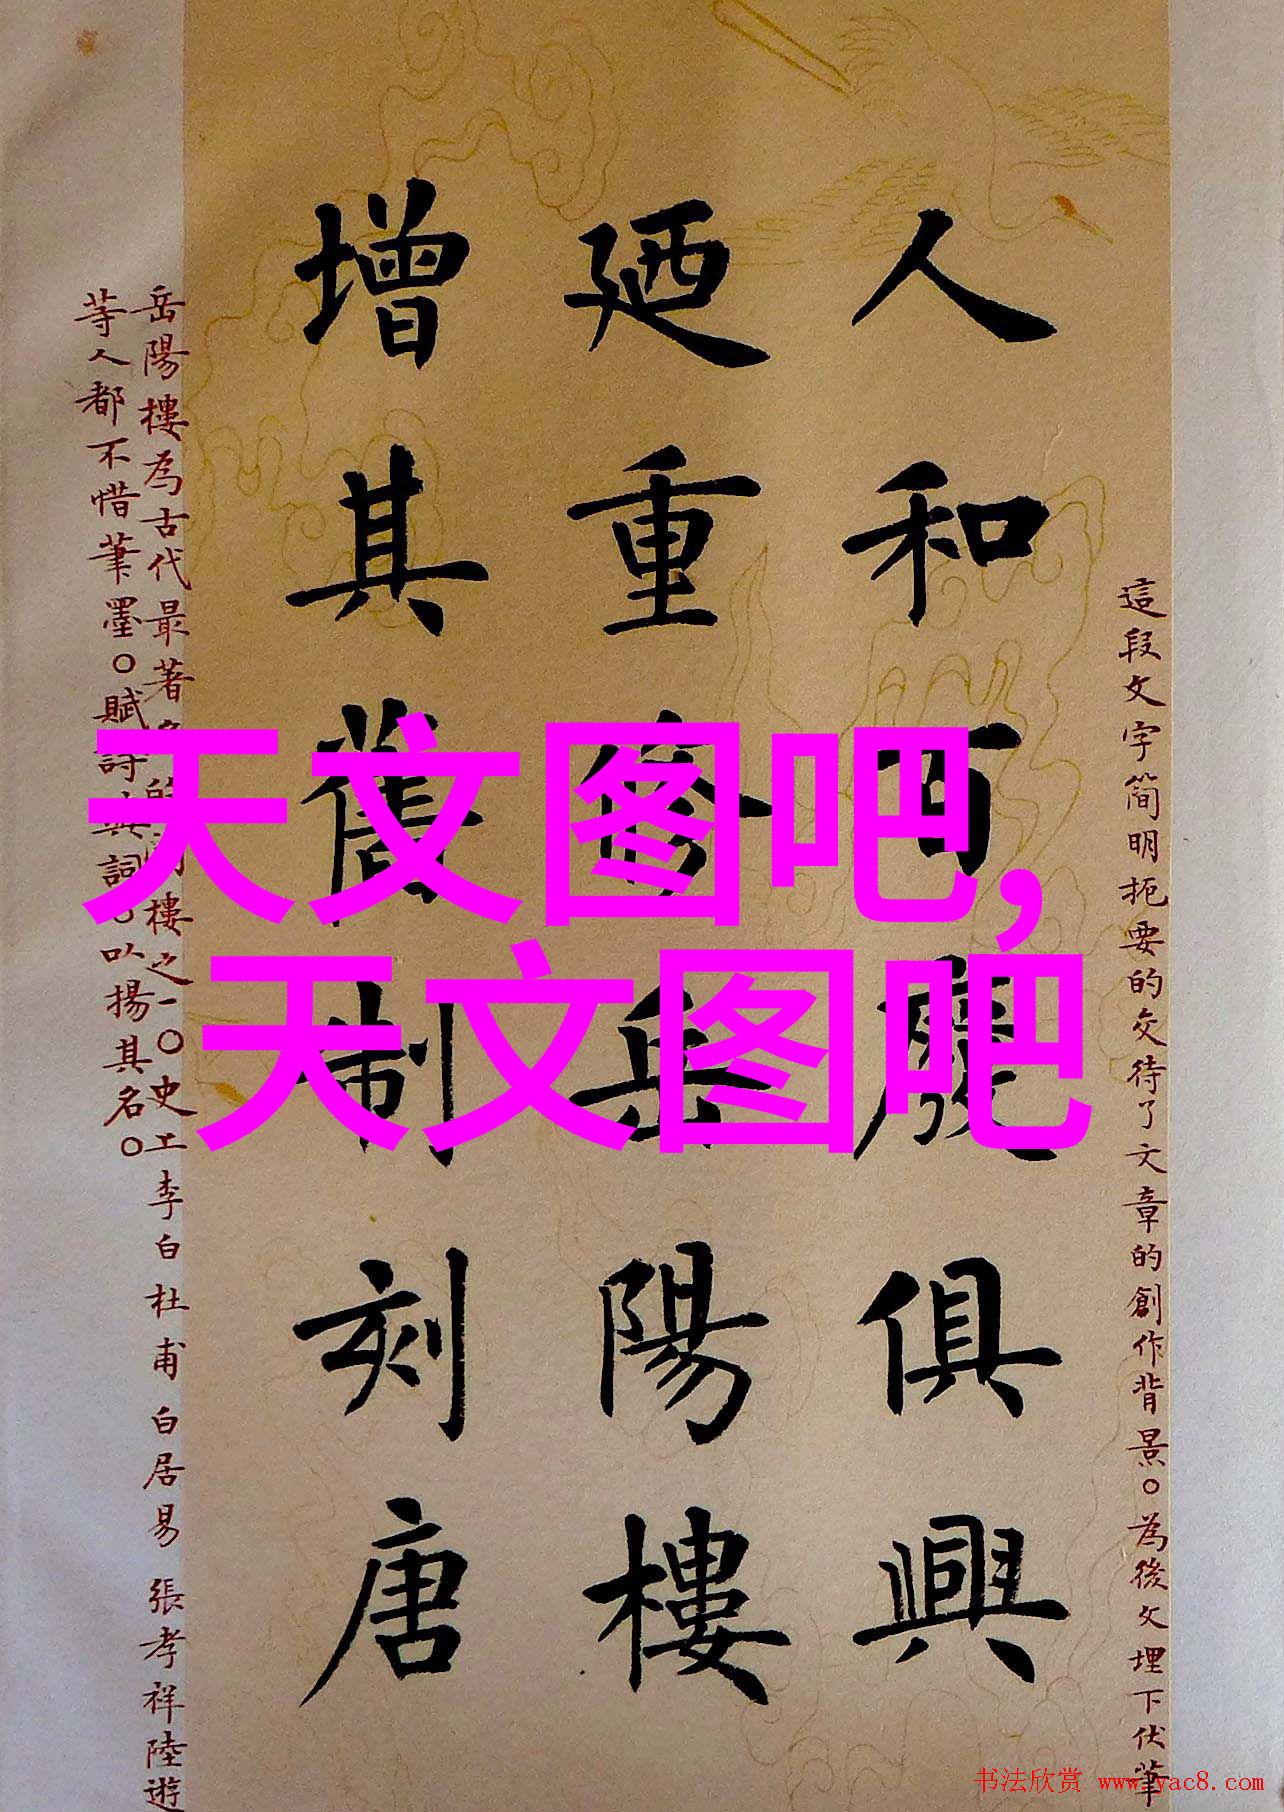 這段文字简明扼要的交待了文章的創作背景。為後文埋下伏筆
人和百廢俱興
廼重修岳陽樓
增其舊制刻唐
岳陽樓為古代最著名的樓之一。史上李白杜甫白居易張孝祥陸遊
等人都不惜筆墨。賦詩詞。以揚其名。
天文图吧,
天文图吧
书法欣赏 www.yac8.com